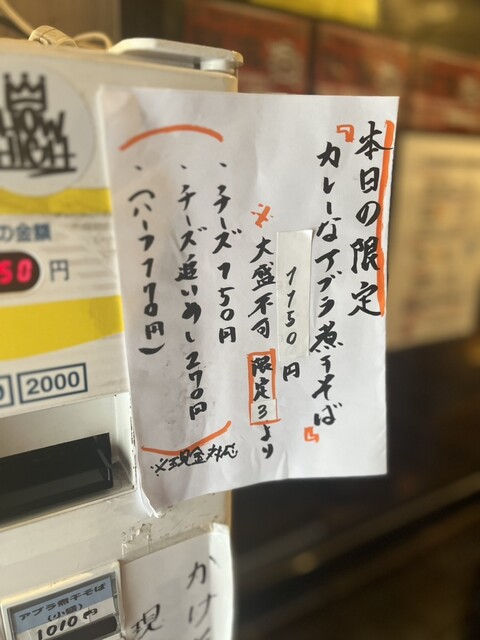 本日の限定
『カレーなアブラ煮干そば』
1150円
※大盛不可 限定3より
・チーズ150円
・チーズ追いめし270円
・(ハーフ170円)
※現金対応
の金額
50円
2000
アブラ煮干そば
(小盛)
1010円
かけ
現